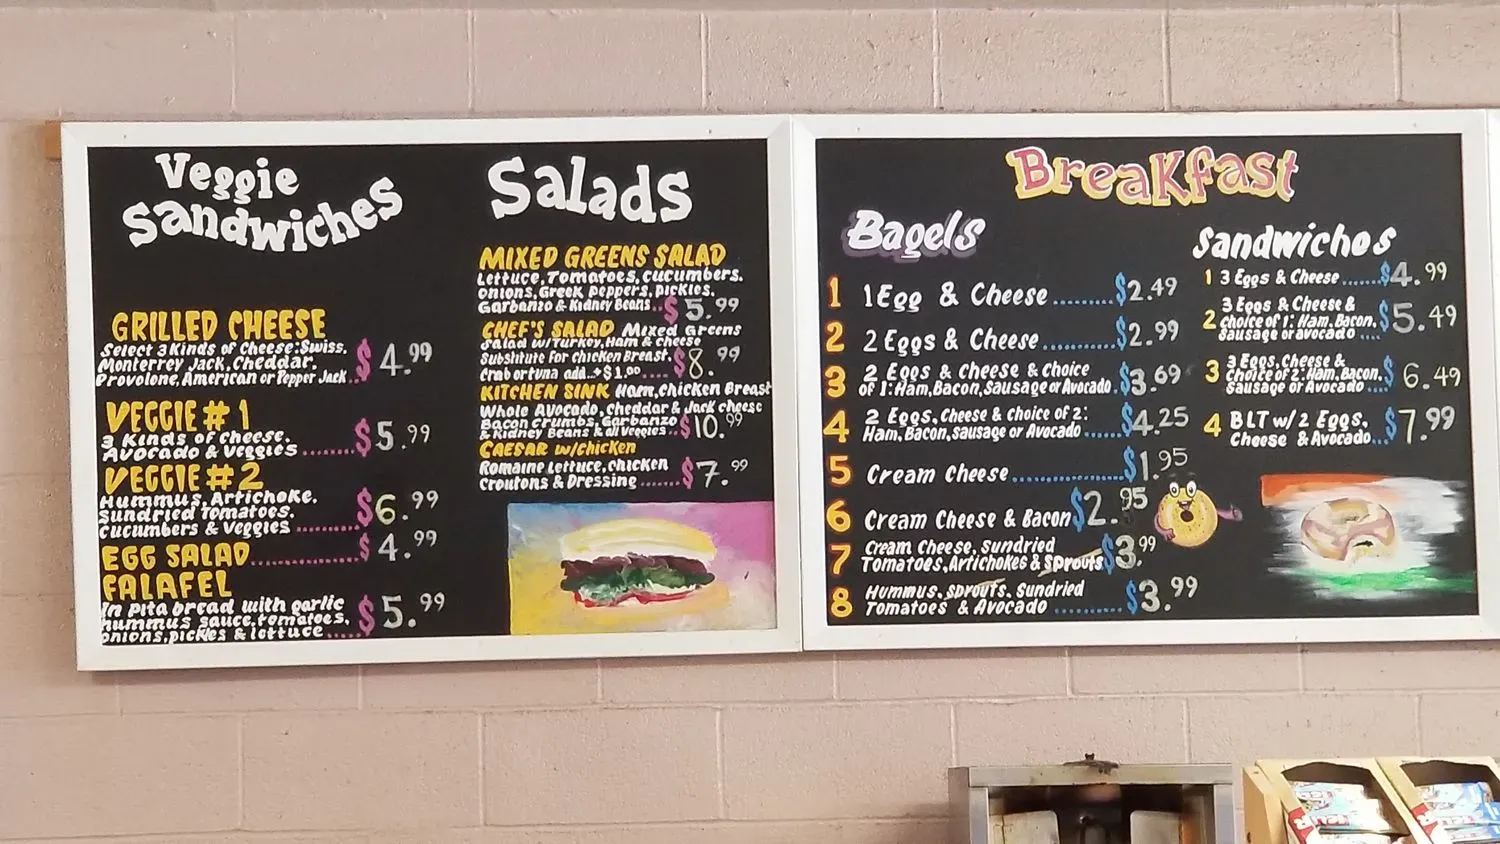 Veggie
Sandwiches
GRILLED CHEESE
Select 3 Kinds of Cheese: Swiss,
Monterrey Jack, Cheddar,
Provolone, American or Pepper Jack.. $4.99
VEGGIE #1
3 Kinds of cheese,
Avocado & Veggies ........ $5.99
VEGGIE #2
Hummus, Artichoke,
sundried Tomatoes,
cucumbers & Veggies .......... $6.99
EGG SALAD .............. $4.99
FALAFEL
In pita bread with garlic
hummus sauce, tomatoes,
onions, pickles & lettuce ..... $5.99
Salads
MIXED GREENS SALAD
Lettuce, Tomatoes, cucumbers,
onions, Greek peppers, pickles,
Garbanzo & Kidney Beans .. $5.99
CHEF'S SALAD Mixed Greens
Salad w/Turkey, Ham & cheese
Substitute for chicken Breast.
Crab or tuna add..+$1.00 .... $8.99
KITCHEN SINK Ham, chicken Breast
Whole Avocado, cheddar & Jack cheese
Bacon crumbs, Garbanzo
& Kidney Beans & all veggies .. $10.99
CAESAR w/chicken
Romaine lettuce, chicken
Croutons & Dressing ....... $7.99
Breakfast
Bagels
1 1 Egg & Cheese ........ $2.49
2 2 Eggs & Cheese .......... $2.99
3 2 Eggs & Cheese & Choice
of 1: Ham, Bacon, Sausage or Avocado . $3.69
4 2 Eggs, Cheese & choice of 2:
Ham, Bacon, sausage or Avocado ..... $4.25
5 Cream Cheese .............. $1.95
6 Cream Cheese & Bacon $2.95
7 Cream Cheese, Sundried
Tomatoes, Artichokes & Sprouts $3.99
8 Hummus, sprouts, Sundried
Tomatoes & Avocado .......... $3.99
Sandwiches
1 3 Eggs & Cheese ...... $4.99
2 3 Eggs & Cheese &
choice of 1: Ham, Bacon,
Sausage or avocado .... $5.49
3 3 Eggs, Cheese &
Choice of 2: Ham, Bacon,
Sausage or Avocado ... $6.49
4 BLT w/ 2 Eggs,
Cheese & Avocado .. $7.99